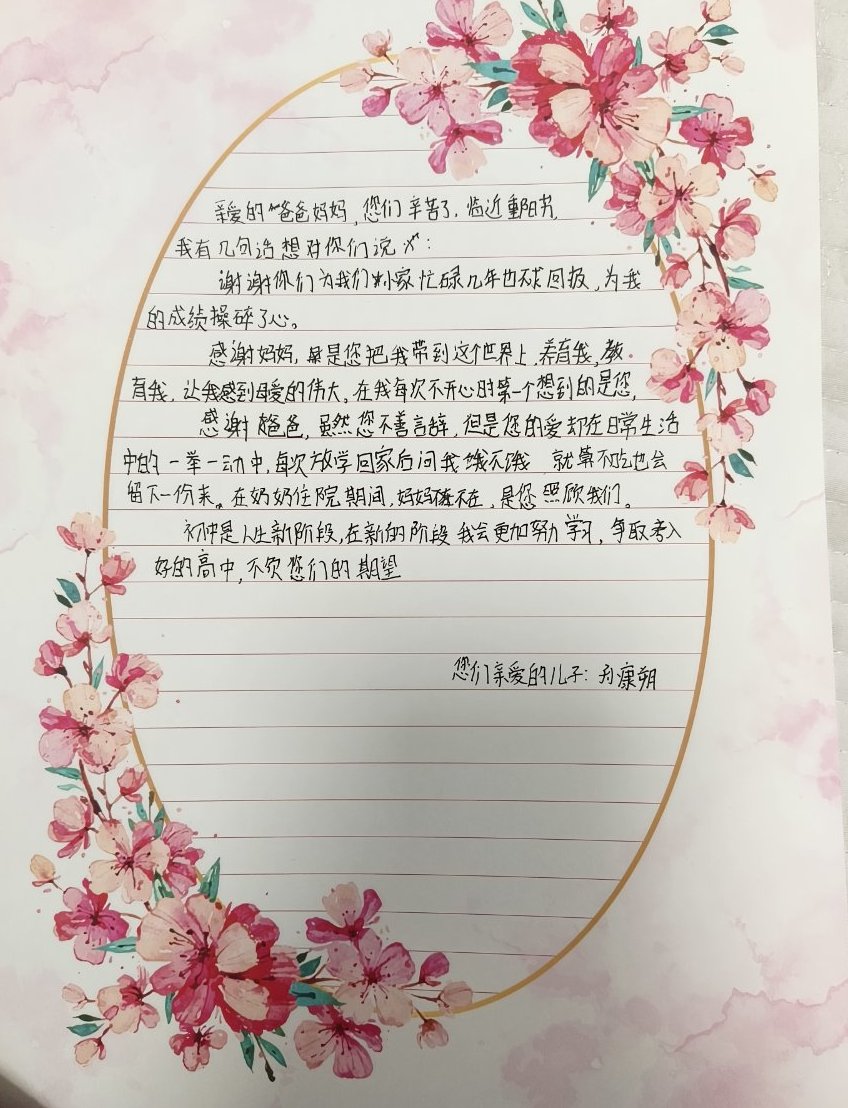 亲爱的爸爸妈妈，您们辛苦了，临近重阳节，
我有几句话想对你们说：
谢谢你们为我们小家忙碌几年也不求回报，为我
的成绩操碎了心。
感谢妈妈，是您把我带到这个世界上，养育我，教
育我，让我感到母爱的伟大。在我每次不开心时第一个想到的是您，
感谢爸爸，虽然您不善言辞，但是您的爱却在日常生活
中的一举一动中，每次放学回家后问我饿不饿 就算不吃也会
留下一份来。在奶奶住院期间，妈妈不在，是您照顾我们。
初中是人生新阶段，在新的阶段我会更加努力学习，争取考入
好的高中，不负您们的期望
您们亲爱的儿子：康朔